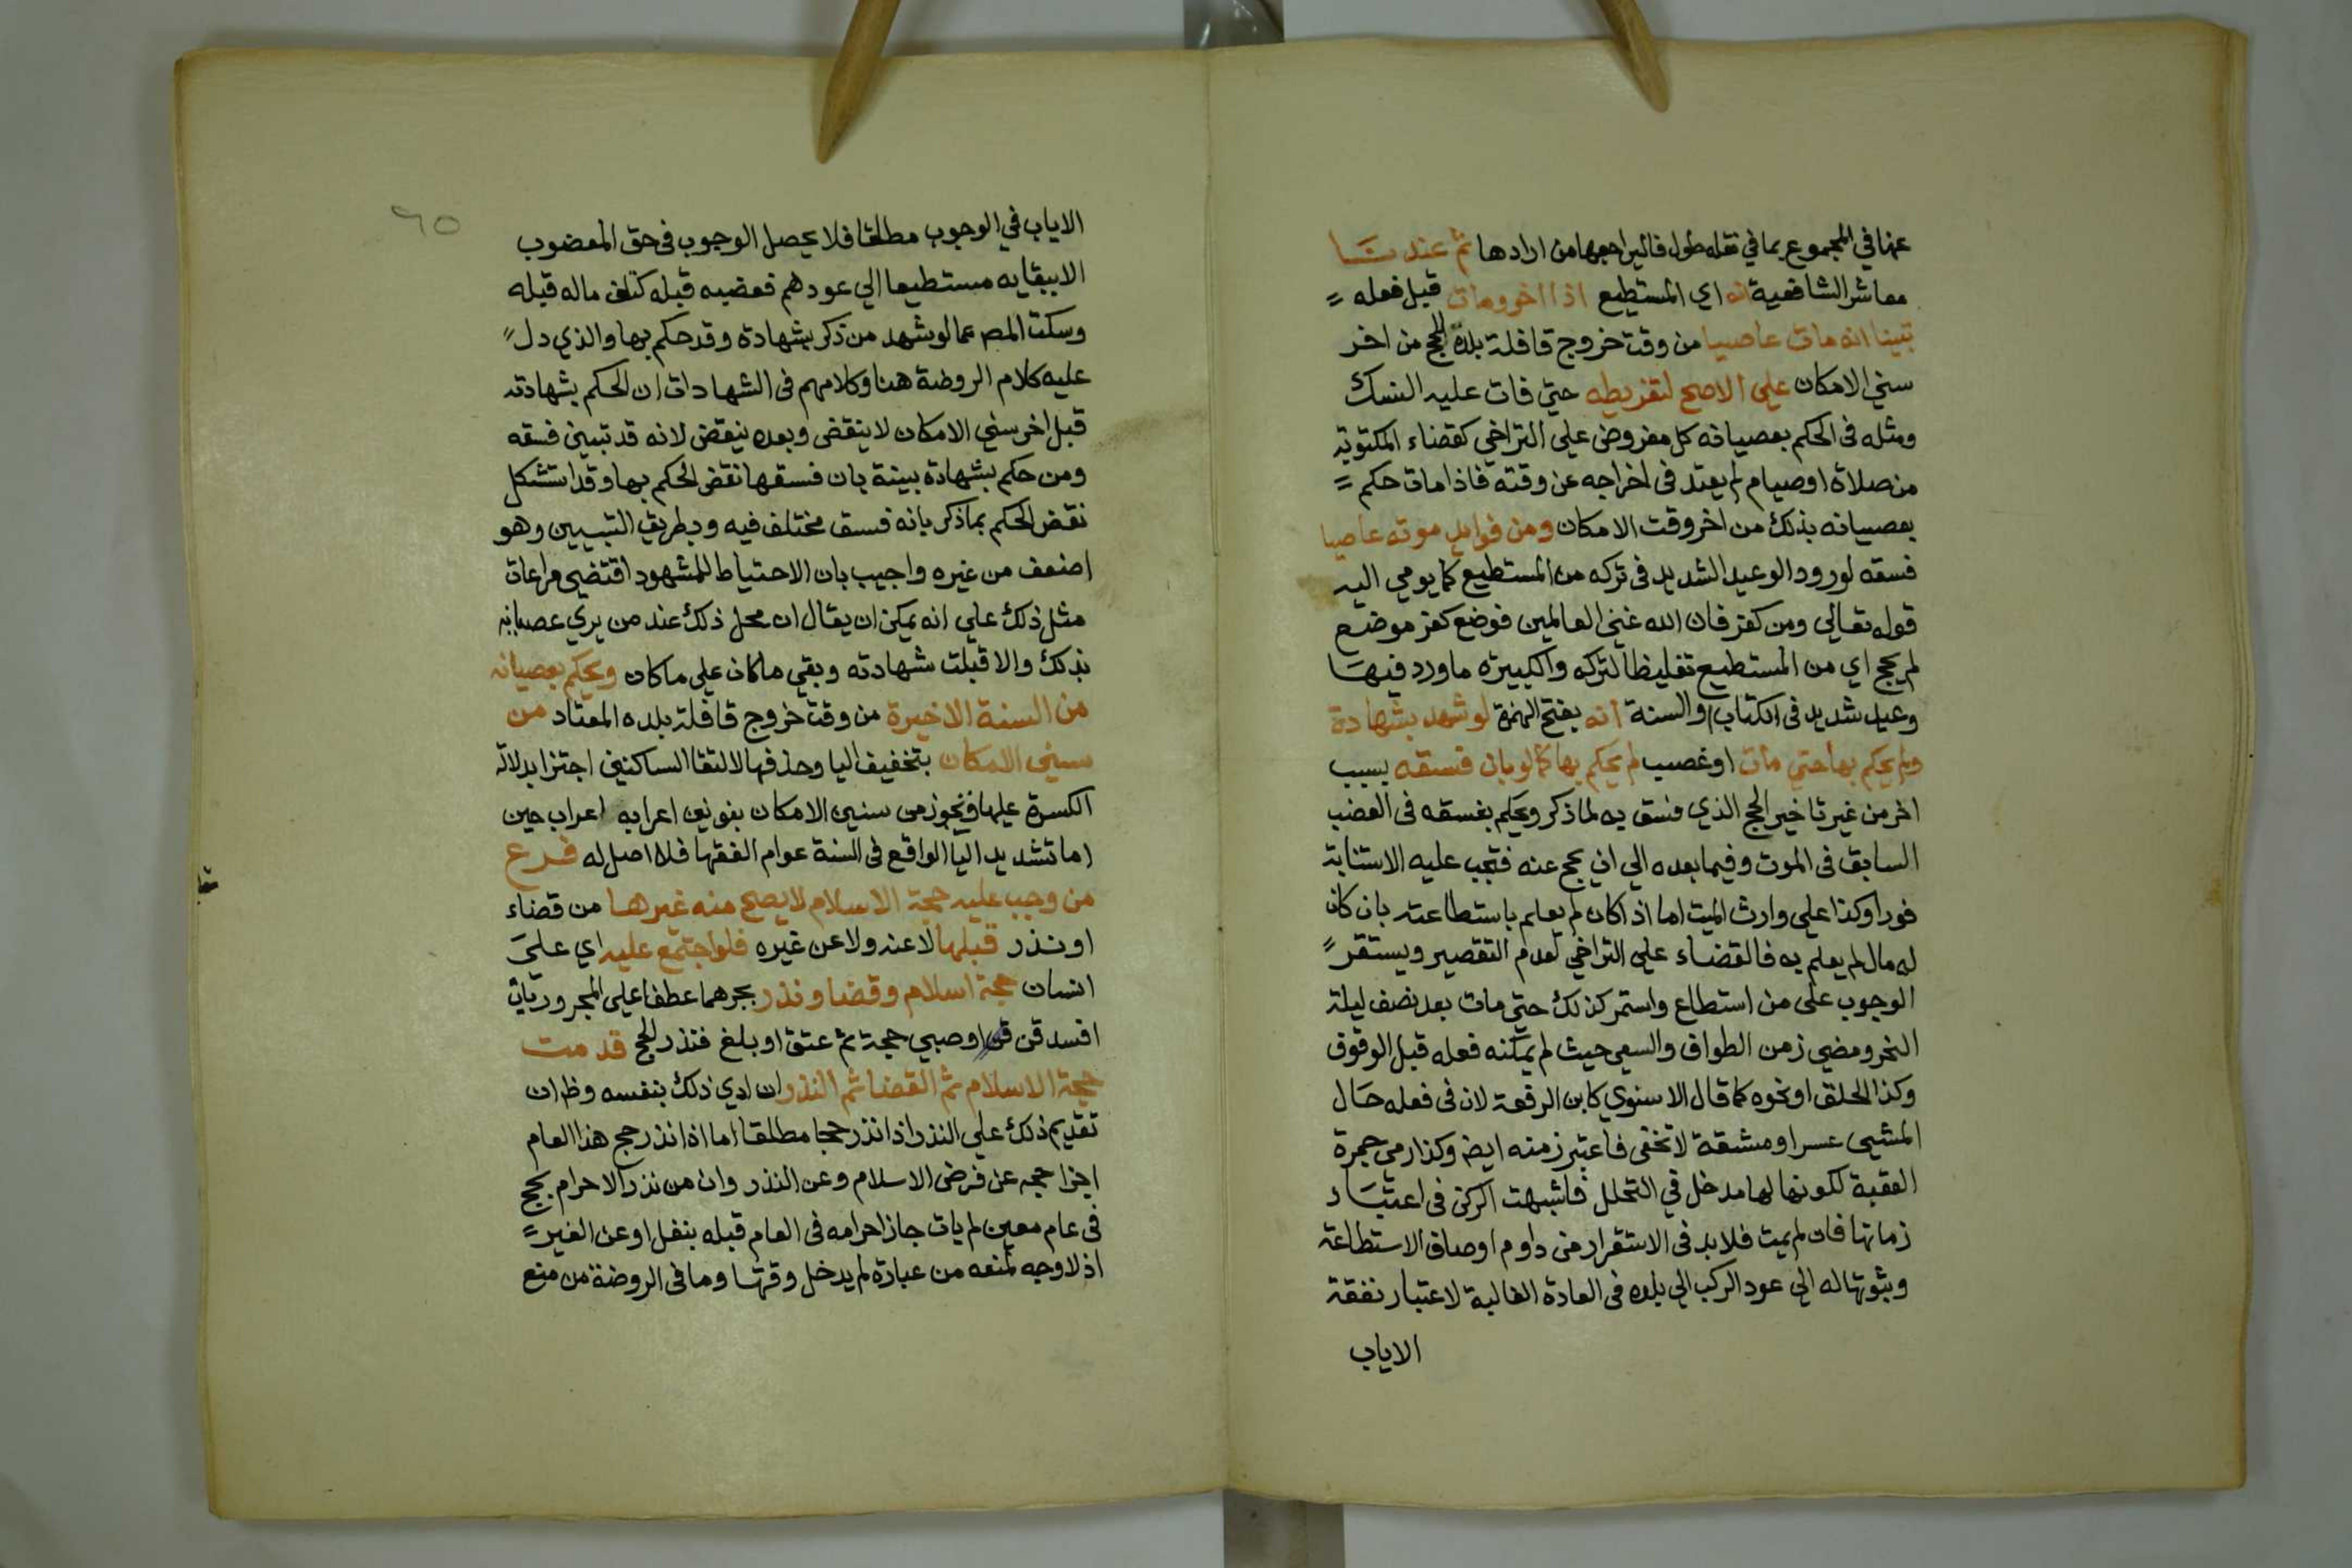 عنها في المجموع بما في نقله طول فاليراجعها من ارادها ثم عندنا
معاشر الشافعية انه اي المستطيع اذا اخر ومات قبل فعله
تبينا انه مات عاصيا من وقت خروج قافلة بلده للحج من اخر
سني الامكان علي الاصح لتفريطه حتي فات عليه النسك
ومثله في الحكم بعصيانه كل مفروض علي التراخي كقضاء المكتوبة
من صلاة او صيام لم يعتد في اخراجه عن وقته فاذا مات حكم
بعصيانه بذلك من اخر وقت الامكان ومن فوايد موته عاصيا
فسقه لورود الوعيد الشديد في تركه من المستطيع كما يومي اليه
قوله تعالي ومن كفر فان الله غني العالمين فوضع كفر موضع
لم يحج اي من المستطيع تغليظا لتركه والكبيرة ما ورد فيها
وعيد شديد في الكتاب او السنة انه بفتح الهمزة لو شهد بشهادة
ولم يحكم بها حتي مات او غصب لم يحكم بها كما لو بان فسقه بسبب
اخر من غير تاخير الحج الذي فسق به لما ذكر ويحكم بفسقه في العضب
السابق في الموت وفيما بعده الي ان يحج عنه فتجب عليه الاستنابة
فورا وكذا علي وارث الميت اما اذا كان لم يعلم باستطاعته بان كان
له مال لم يعلم به فالقضاء علي التراخي لعدم التقصير ويستقر
الوجوب على من استطاع واستمر كذلك حتي مات بعد نصف ليلة
النحر ومضي زمن الطواف والسعي حيث لم يمكنه فعله قبل الوقوف
وكذا الحلق او نحوه كما قال الاسنوي كابن الرفعة لان في فعله حال
المشي عسرا ومشقة لا تخفى فاعتبر زمنه ايض وكذا رمي جمرة
العقبة لكونها لها مدخل في التحلل فاشبهت الركن في اعتبار
زمانها فان لم يمت فلا بد في الاستقرار من داوم اوصاف الاستطاعة
وبثوتها له الي عود الركب الي بلده في العادة الغالبة لاعتبار نفقة
الاياب
٦٥
الاياب في الوجوب مطلقا فلا يحصل الوجوب في حق المعضوب
الا ببقايه مستطيعا الي عودهم فعضبه قبله كتلف ماله قبله
وسكت المص عما لو شهد من ذكر بشهادة وقد حكم بها والذي دل
عليه كلام الروضة هنا وكلامهم في الشهادات ان الحكم بشهادته
قبل اخر سني الامكان لا ينقض وبعده ينقض لانه قد تبين فسقه
ومن حكم بشهادة بينة بان فسقها نقض الحكم بها وقد استشكل
نقض الحكم بما ذكر بانه فسق مختلف فيه وبطريق التبيين وهو
اضعف من غيره واجيب بان الاحتياط للمشهود اقتضى مراعات
مثل ذلك علي انه يمكن ان يقال ان محل ذلك عند من يري عصيانه
بذلك والا قبلت شهادته وبقي ما كان علي ما كان ويحكم بعصيانه
من السنة الاخيرة من وقت خروج قافلة بلده المعتاد من
سني الامكان بتخفيف اليا وحذفها لالتقا الساكنين اجتزا بدلالة
الكسرة عليها فيجوز من سنين الامكان بنونين اعرابه اعراب حين
اما تشديد اليا الواقع في السنة عوام الفقها فلا اصل له فرع
من وجب عليه حجة الاسلام لا يصح منه غيرها من قضاء
او نذر قبلها لا عنه ولا عن غيره فلو اجتمع عليه اي علي
انسان حجة اسلام وقضا ونذر بجرهما عطفا علي المجرور بان
افسد قن او صبي حجة ثم عتق او بلغ فنذر الحج قدمت
حجة الاسلام ثم القضا ثم النذر ان ادي ذلك بنفسه وظ ان
تقديم ذلك علي النذر اذا نذر حجا مطلقا اما اذا نذر حج هذا العام
اجزا حجه عن فرض الاسلام وعن النذر وان من نذر الاحرام بحج
في عام معين لم يات جاز احرامه في العام قبله بنفل او عن الغير
اذ لا وجه لمنعه من عبادة لم يدخل وقتها وما في الروضة من منع